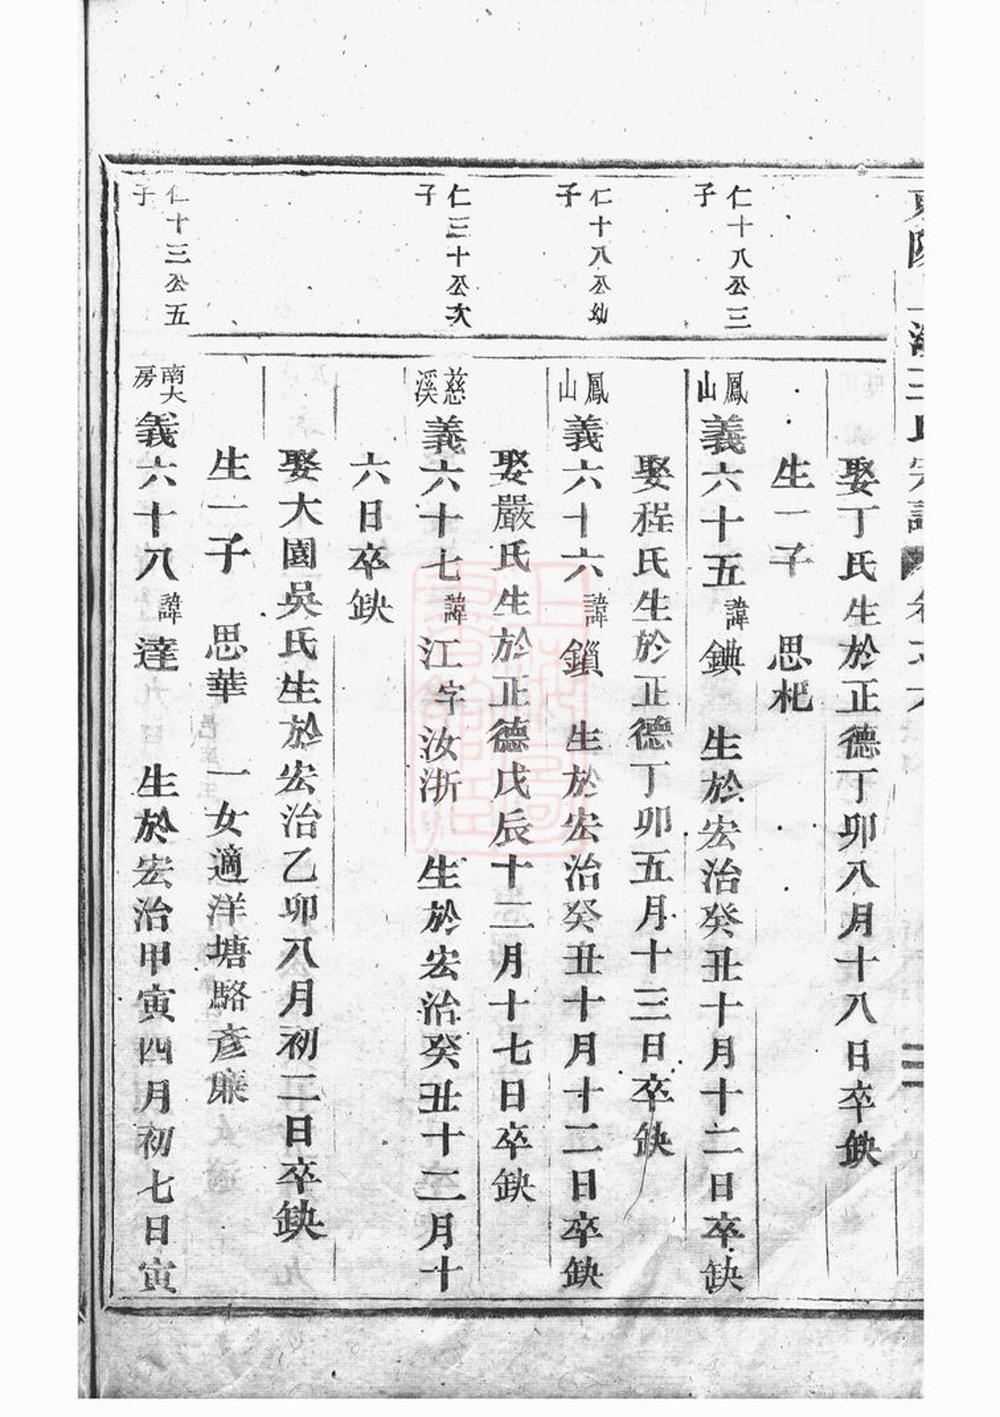 娶丁氏生於正德丁卯八月十八日卒缺
生一子 思杷
仁十八公三子
鳳山義六十五諱錪 生於宏治癸丑十月十二日卒缺
娶程氏生於正德丁卯五月十三日卒缺
仁十八公幼子
鳳山義六十六諱鎻 生於宏治癸丑十月十二日卒缺
娶嚴氏生於正德戊辰十二月十七日卒缺
仁三十公次子
慈溪義六十七諱江字汝浙 生於宏治癸丑十二月十
六日卒缺
娶大園吳氏生於宏治乙卯八月初二日卒缺
生一子 思華 一女適洋塘駱彥廉
仁十三公五子
南大房義六十八諱達 生於宏治甲寅四月初七日寅